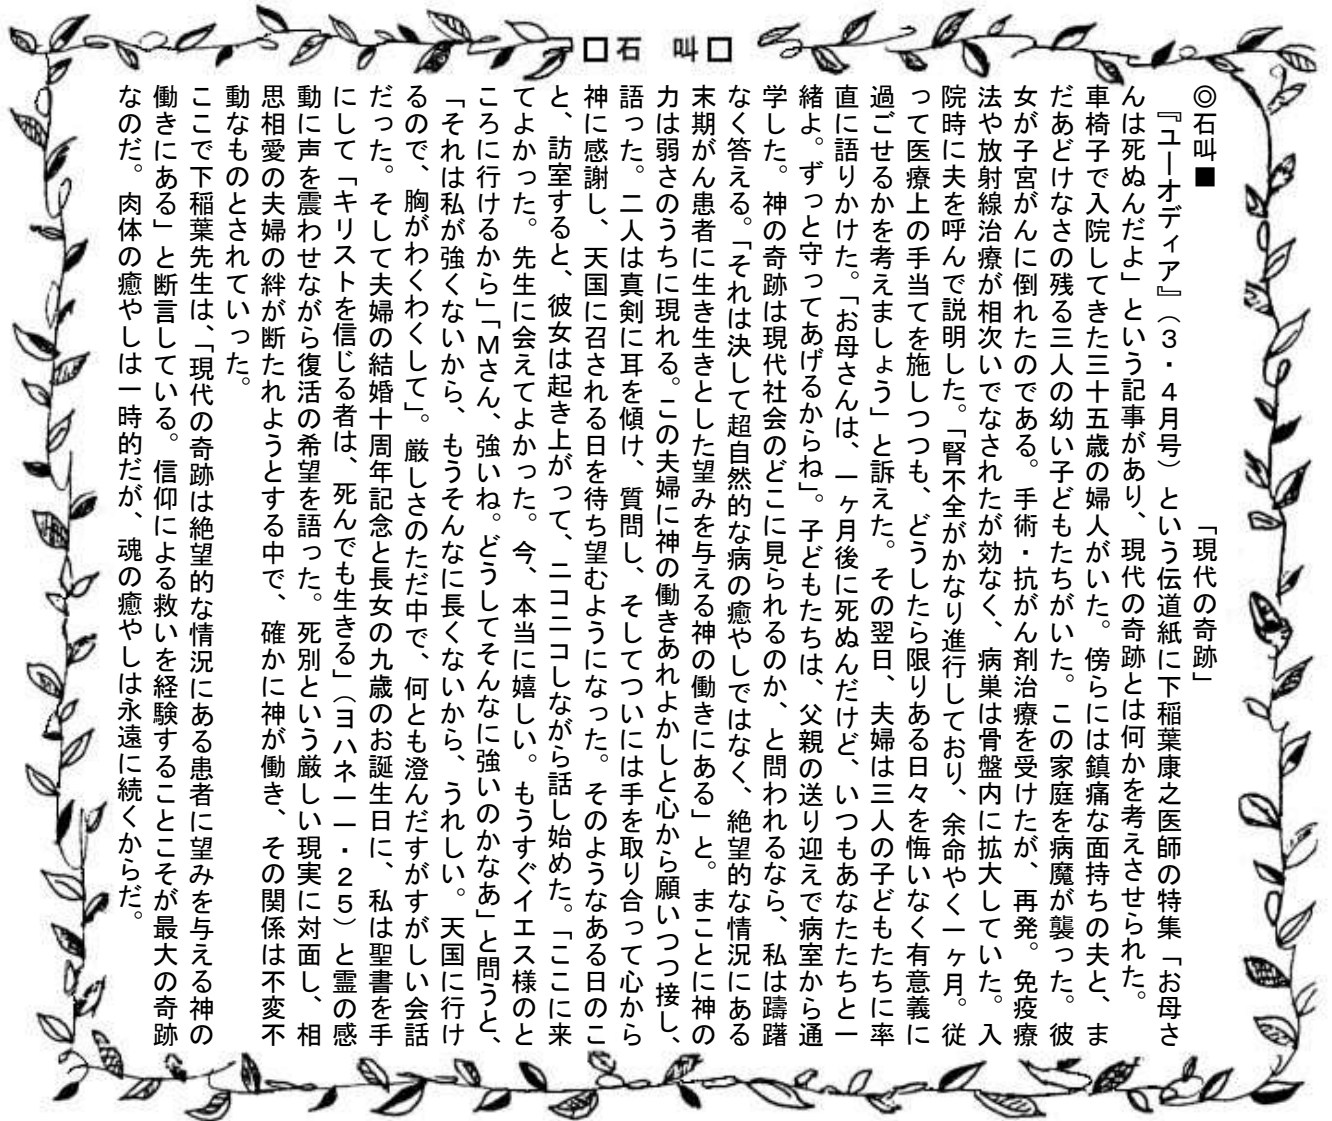 □石　叫□
◎石叫■　　　　　　　　　「現代の奇跡」
　『ユーオディア』（３・４月号）という伝道紙に下稲葉康之医師の特集「お母さ
んは死ぬんだよ」という記事があり、現代の奇跡とは何かを考えさせられた。
車椅子で入院してきた三十五歳の婦人がいた。傍らには鎮痛な面持ちの夫と、ま
だあどけなさの残る三人の幼い子どもたちがいた。この家庭を病魔が襲った。彼
女が子宮がんに倒れたのである。手術・抗がん剤治療を受けたが、再発。免疫療
法や放射線治療が相次いでなされたが効なく、病巣は骨盤内に拡大していた。入
院時に夫を呼んで説明した。「腎不全がかなり進行しており、余命やく一ヶ月。従
って医療上の手当てを施しつつも、どうしたら限りある日々を悔いなく有意義に
過ごせるかを考えましょう」と訴えた。その翌日、夫婦は三人の子どもたちに率
直に語りかけた。「お母さんは、一ヶ月後に死ぬんだけど、いつもあなたたちと一
緒よ。ずっと守ってあげるからね」。子どもたちは、父親の送り迎えで病室から通
学した。神の奇跡は現代社会のどこに見られるのか、と問われるなら、私は躊躇
なく答える。「それは決して超自然的な病の癒やしではなく、絶望的な情況にある
末期がん患者に生き生きとした望みを与える神の働きにある」と。まことに神の
力は弱さのうちに現れる。この夫婦に神の働きあれよかしと心から願いつつ接し、
語った。二人は真剣に耳を傾け、質問し、そしてついには手を取り合って心から
神に感謝し、天国に召される日を待ち望むようになった。そのようなある日のこ
と、訪室すると、彼女は起き上がって、ニコニコしながら話し始めた。「ここに来
てよかった。先生に会えてよかった。今、本当に嬉しい。もうすぐイエス様のと
ころに行けるから」「Ｍさん、強いね。どうしてそんなに強いのかなあ」と問うと、
「それは私が強くないから、もうそんなに長くないから、うれしい。天国に行け
るので、胸がわくわくして」。厳しさのただ中で、何とも澄んだすがすがしい会話
だった。そして夫婦の結婚十周年記念と長女の九歳のお誕生日に、私は聖書を手
にして「キリストを信じる者は、死んでも生きる」（ヨハネ一一・２５）と霊の感
動に声を震わせながら復活の希望を語った。死別という厳しい現実に対面し、相
思相愛の夫婦の絆が断たれようとする中で、確かに神が働き、その関係は不変不
動なものとされていった。
ここで下稲葉先生は、「現代の奇跡は絶望的な情況にある患者に望みを与える神の
働きにある」と断言している。信仰による救いを経験することこそが最大の奇跡
なのだ。肉体の癒やしは一時的だが、魂の癒やしは永遠に続くからだ。